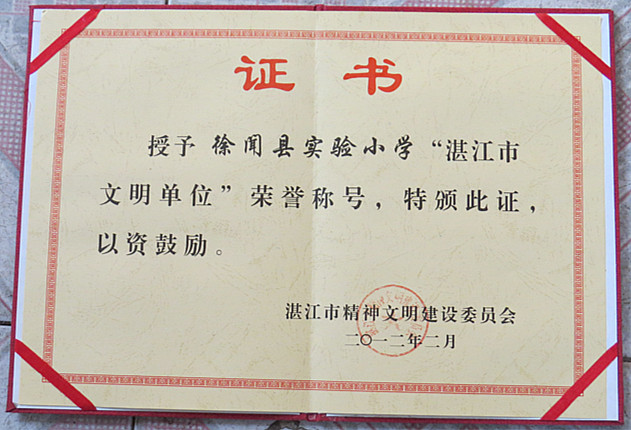 证书
授予 徐闻县实验小学“湛江市
文明单位”荣誉称号，特颁此证，
以资鼓励。
湛江市精神文明建设委员会
二〇一二年二月